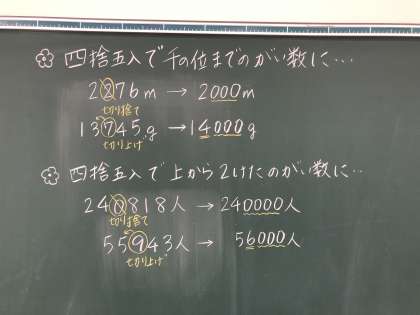 四捨五入で千の位までのがい数に…
2276m → 2000m
切り捨て
13745g → 14000g
切り上げ
四捨五入で上から2けたのがい数に…
240818人 → 240000人
切り捨て
55943人 → 56000人
切り上げ